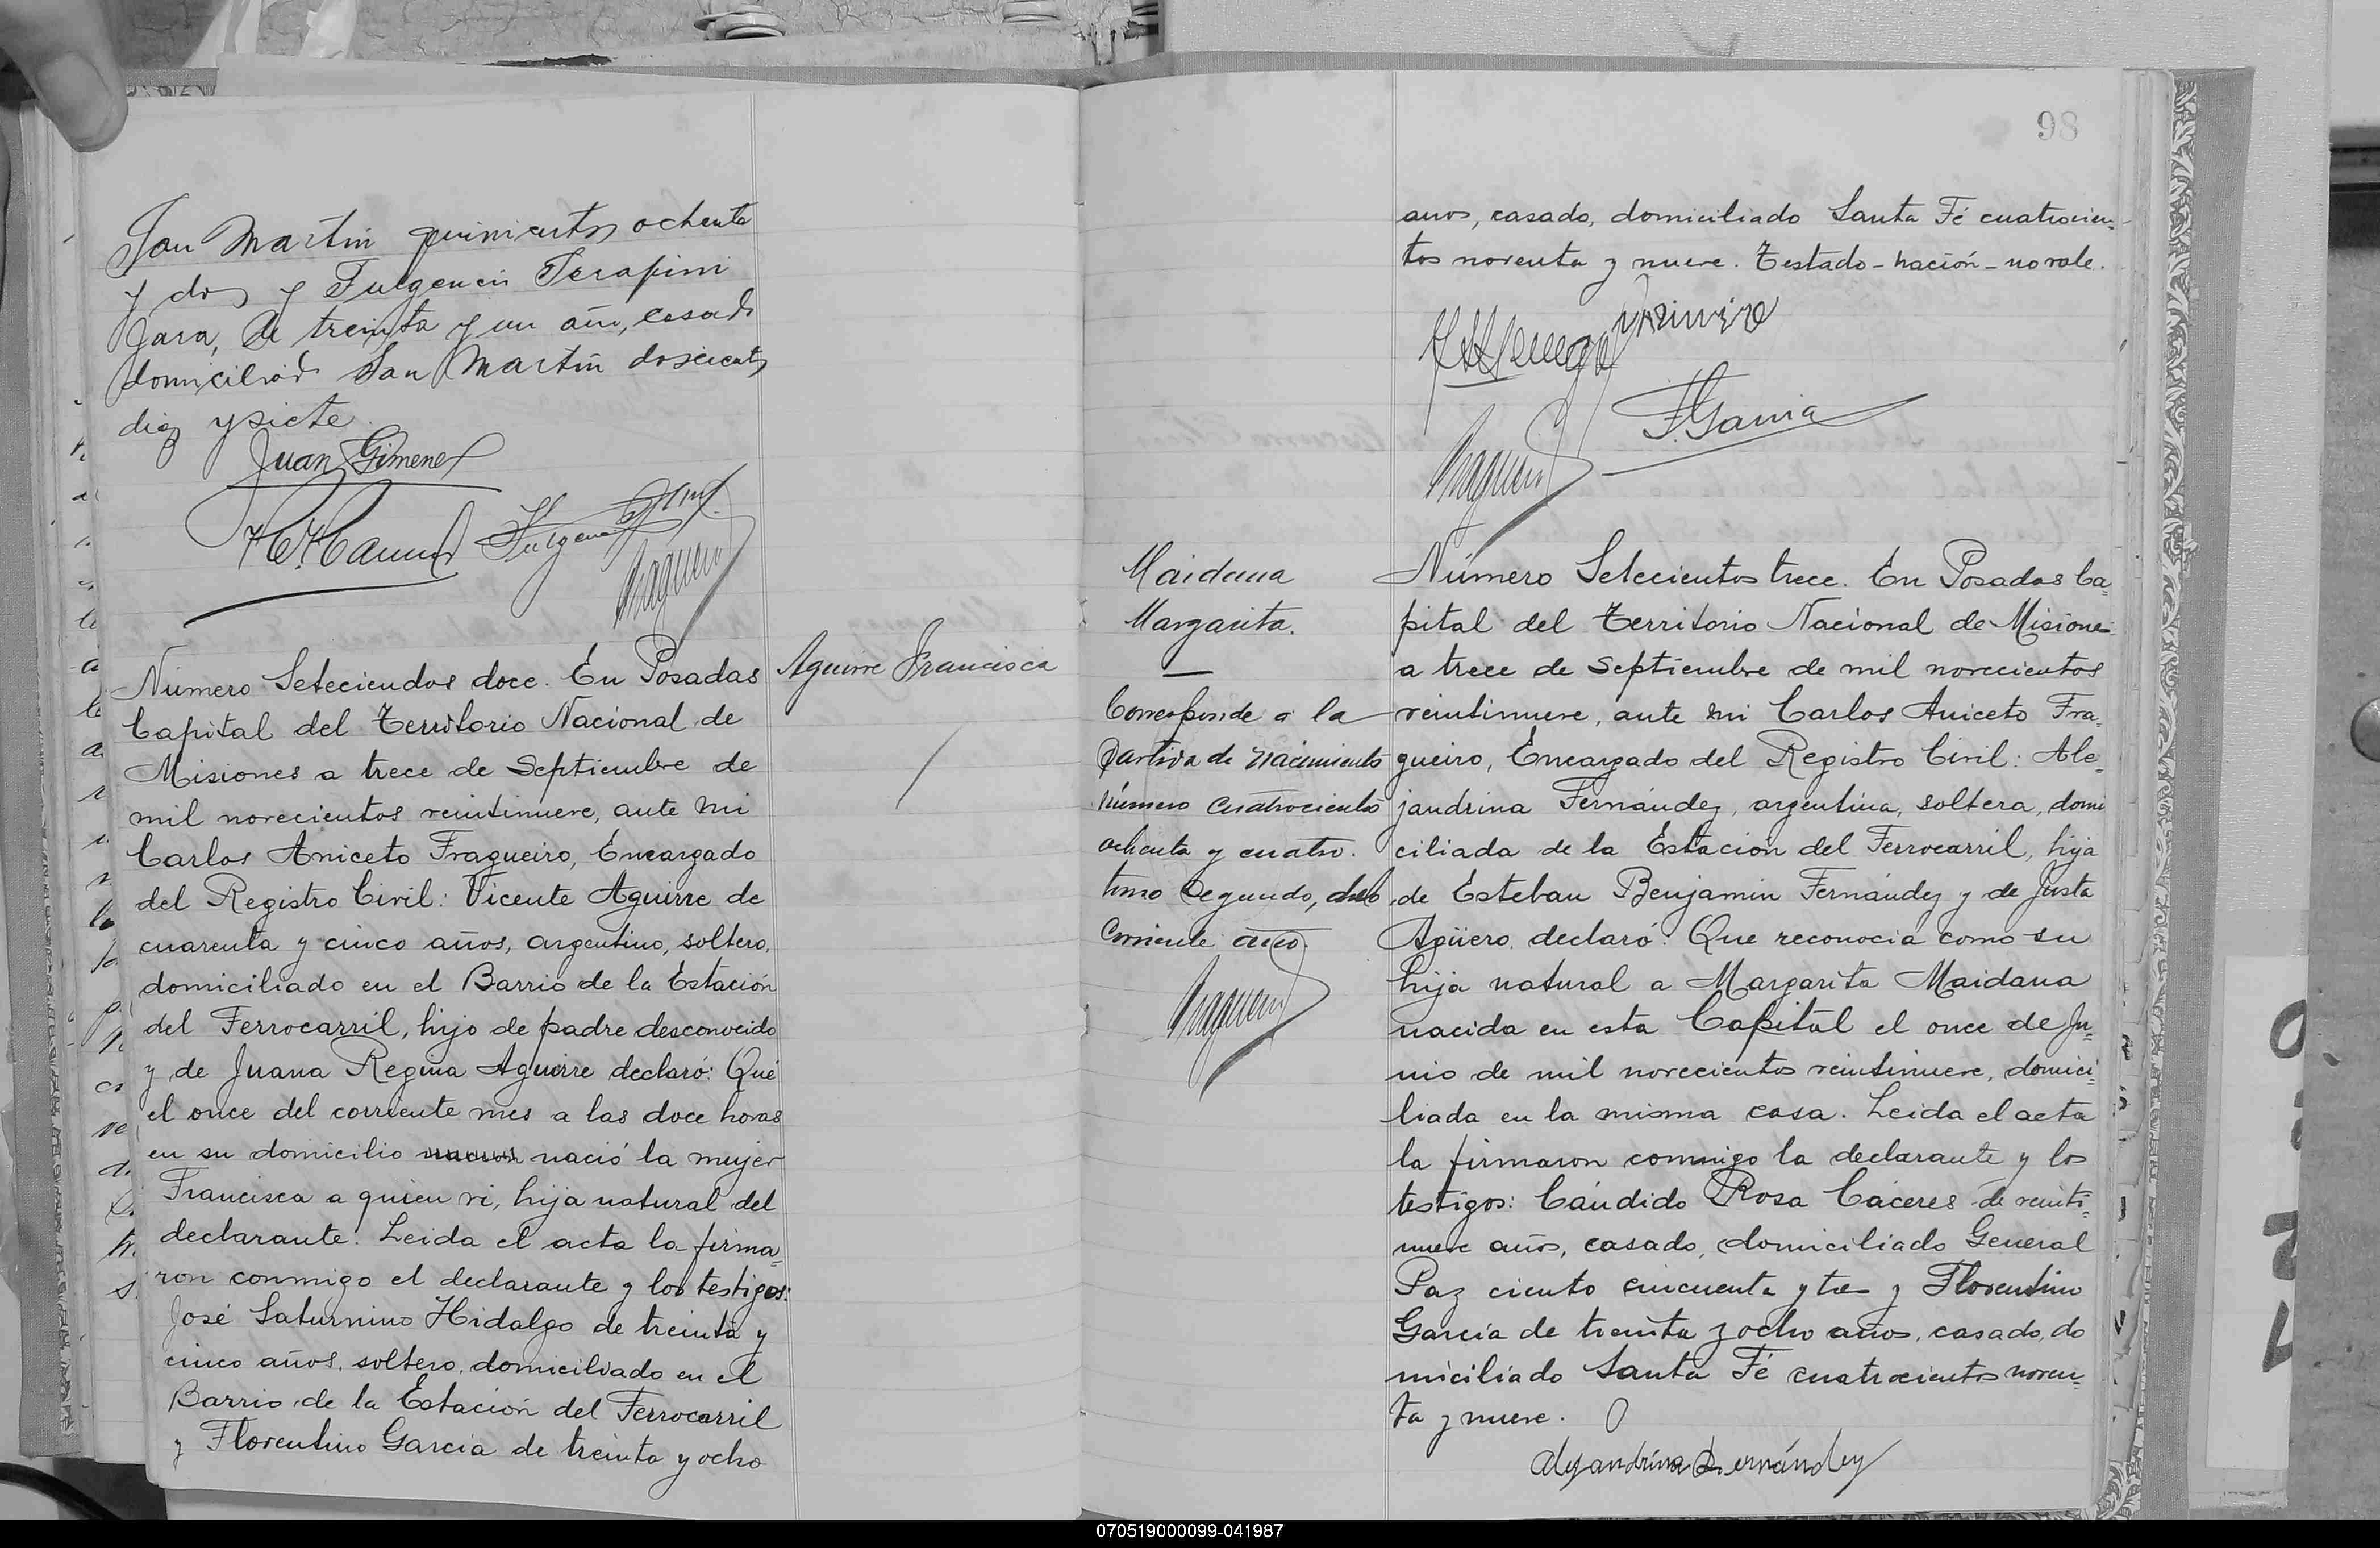 San Martin quinientos ochenta
y dos y Fulgencio Serapini
Jara, de treinta y un año, casado
domiciliado San Martin doscientos
diez y siete.
Juan Gimenez
Número Setecientos doce. En Posadas
Capital del Territorio Nacional de
Misiones a trece de Septiembre de
mil novecientos veintinueve, ante mi
Carlos Aniceto Fragueiro, Encargado
del Registro Civil: Vicente Aguirre de
cuarenta y cinco años, argentino, soltero,
domiciliado en el Barrio de la Estación
del Ferrocarril, hijo de padre desconocido
y de Juana Regina Aguirre declaró: Que
el once del corriente mes a las doce horas
en su domicilio nació la mujer
Francisca a quien vi, hija natural del
declarante. Leida el acta la firma=
ron conmigo el declarante y los testigos:
José Saturnino Hidalgo de treinta y
cinco años, soltero, domiciliado en el
Barrio de la Estación del Ferrocarril
y Florentino García de treinta y ocho
Aguirre Francisca
98
años, casado, domiciliado Santa Fé cuatrocien-
tos noventa y nueve. Testado - nación - no vale.
F. Garcia
Maidana
Margarita.
Corresponde a la
partida de nacimiento
número cuatrocientos
ochenta y cuatro.
tomo segundo, del
corriente año.
Número Setecientos trece. En Posadas Ca=
pital del Territorio Nacional de Misiones
a trece de Septiembre de mil novecientos
veintinueve, ante mi Carlos Aniceto Fra=
gueiro, Encargado del Registro Civil: Ale=
jandrina Fernández, argentina, soltera, domi
ciliada de la Estación del Ferrocarril, hija
de Esteban Benjamin Fernández y de Justa
Agüero, declaró: Que reconocia como su
hija natural a Margarita Maidana
nacida en esta Capital el once de Ju=
nio de mil novecientos veintinueve, domici=
liada en la misma casa. Leida el acta
la firmaron conmigo la declarante y los
testigos: Cándido Rosa Cáceres de veinti=
nueve años, casado, domiciliado General
Paz ciento cincuenta y tres y Florentino
García de treinta y ocho años, casado, do
miciliado Santa Fé cuatrocientos noven=
ta y nueve.
Alejandrina Fernández
070519000099-041987